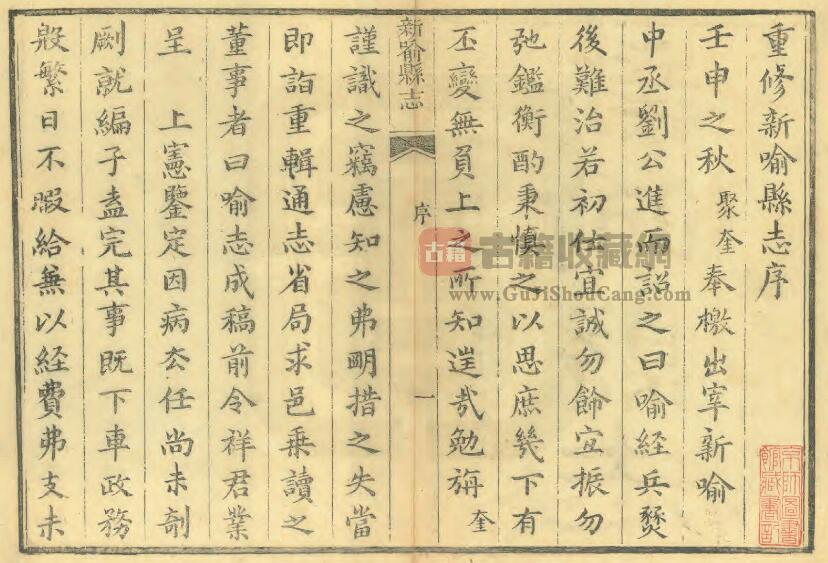 重修新喻縣志序
壬申之秋聚奎奉檄出宰新喻
中丞劉公進而詔之曰喻經兵燹
後難治若初仕宜誠勿飾宜振勿
弛鑑衡酌秉慎之以思庶幾下有
丕變無負上之所知逞哉勉旃奎
新喻縣志
序
一
謹識之竊慮知之弗明措之失當
即詣重輯通志省局求邑乘讀之
董事者曰喻志成稿前令祥君業
呈 上憲鑒定因病厺任尚未剞
劂就編子盍完其事既下車政務
殷繁日不暇給兼以經費弗支未
古籍
古籍收藏網
www.GuJiShouCang.com